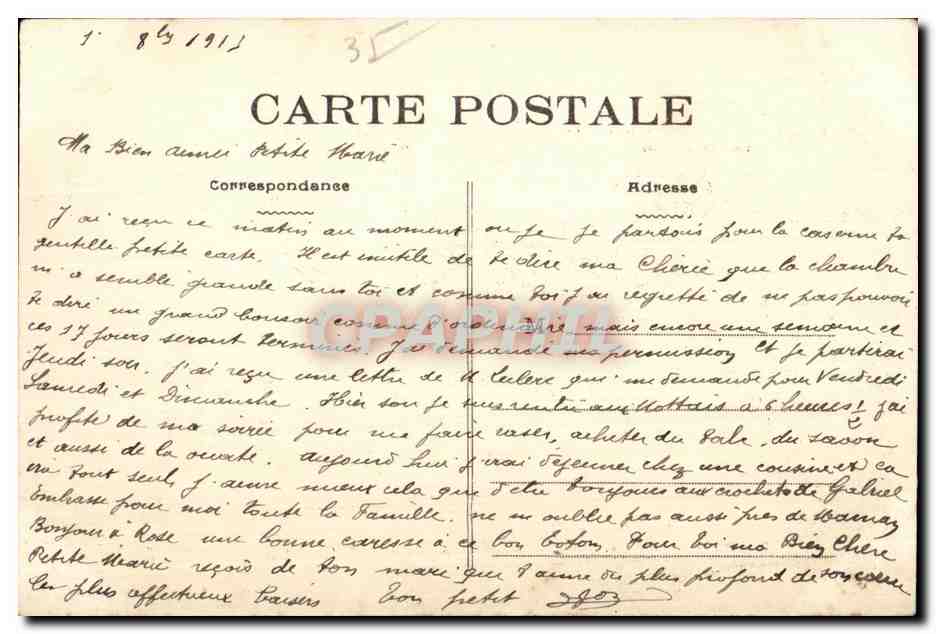 1 8bre 1911
35
CARTE POSTALE
Ma Bien aimée Petite Marie
Correspondance
Adresse
J'ai reçu ce matin au moment ou je je partais pour la caserne ta
gentille petite carte. Il est inutile de te dire ma Chérie que la chambre
m'a semblé grande sans toi et comme toi j'ai regretté de ne pas pouvoir
te dire un grand bonsoir comme d'ordinaire, mais encore une semaine et
ces 17 jours seront terminés. J'ai demandé ma permission et je partirai
Jeudi soir. J'ai reçu une lettre de M. Leclere qui me demande pour Vendredi
Samedi et Dimanche. Hier soir je suis rentré aux Nottais à 6 heures! j'ai
profité de ma soirée pour me faire raser, acheter du Talc, du savon
et aussi de la ouate. aujourd'hui j'irai déjeuner chez une cousine et ça
ira tout seul, j'aime mieux cela que d'être toujours aux crochets de Gabriel
Embrasse pour moi toute la Famille. ne m'oublie pas aussi près de Maman
Bonjour à Rose une bonne caresse à ce bon Toton. Pour toi ma Bien Chère
Petite Marie reçois de ton mari qui t'aime du plus profond de son cœur
les plus affectueux baisers ton petit
CPAPHIL